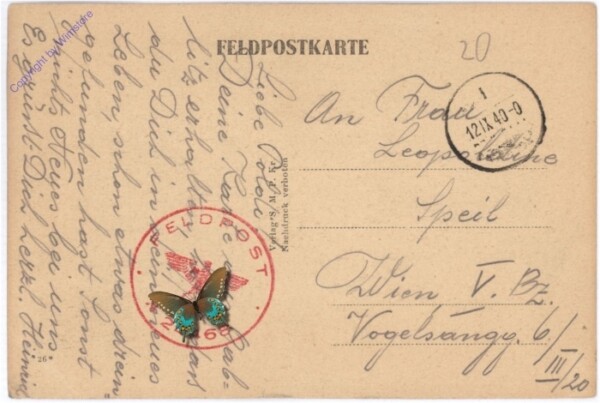 FELDPOSTKARTE
20
Copyright by Wartstore
Liebe Poldi!
Deine Karte Gab-
litz erhalten,
du Dich in dein neues
Leben, schon etwas drein
gefunden hast. Sonst
nichts Neues bei uns
Es grüßt Dich herzl. Heinrich
Verlag S. M. P. Kr.
Nachdruck verboten
1
12.IX.40-0
An Frau
Leopoldine
Speil
Wien V. Bz.
Vogelsangg. 6/
III/20
FELDPOST
"26"